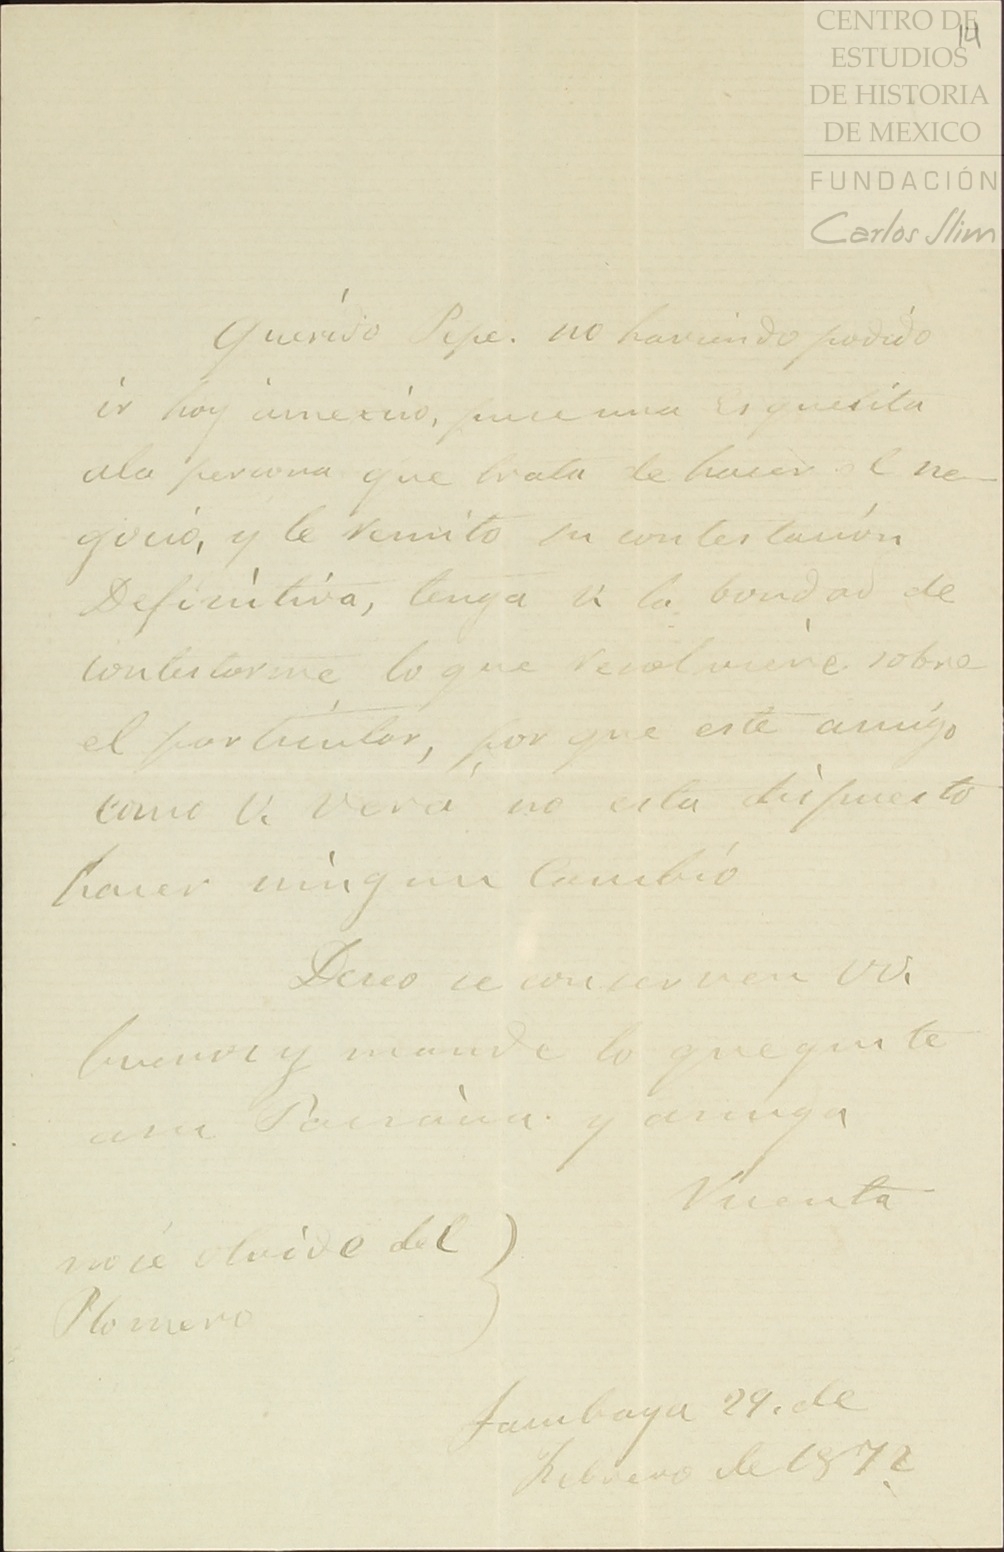 CENTRO DE
ESTUDIOS
DE HISTORIA
DE MEXICO
FUNDACIÓN
Carlos Slim
14
Querido Pepe. no haviendo podido
ir hoy amexico, puse una Esquesita
ala persona que trata de hacer el ne-
gocio, y le remito su contestación
Definitiva, tenga V. la bondad de
contestarme lo que resolviere sobre
el particular, por que este amigo
como V. verá no esta dispuesto
hacer ningun Cambio
Deseo se conserven VV.
buenos y mande lo que guste
asu Paisana y amiga
Vicenta
nose olvide del
Plomero
Tacubaya 29. de
Febrero de 1872